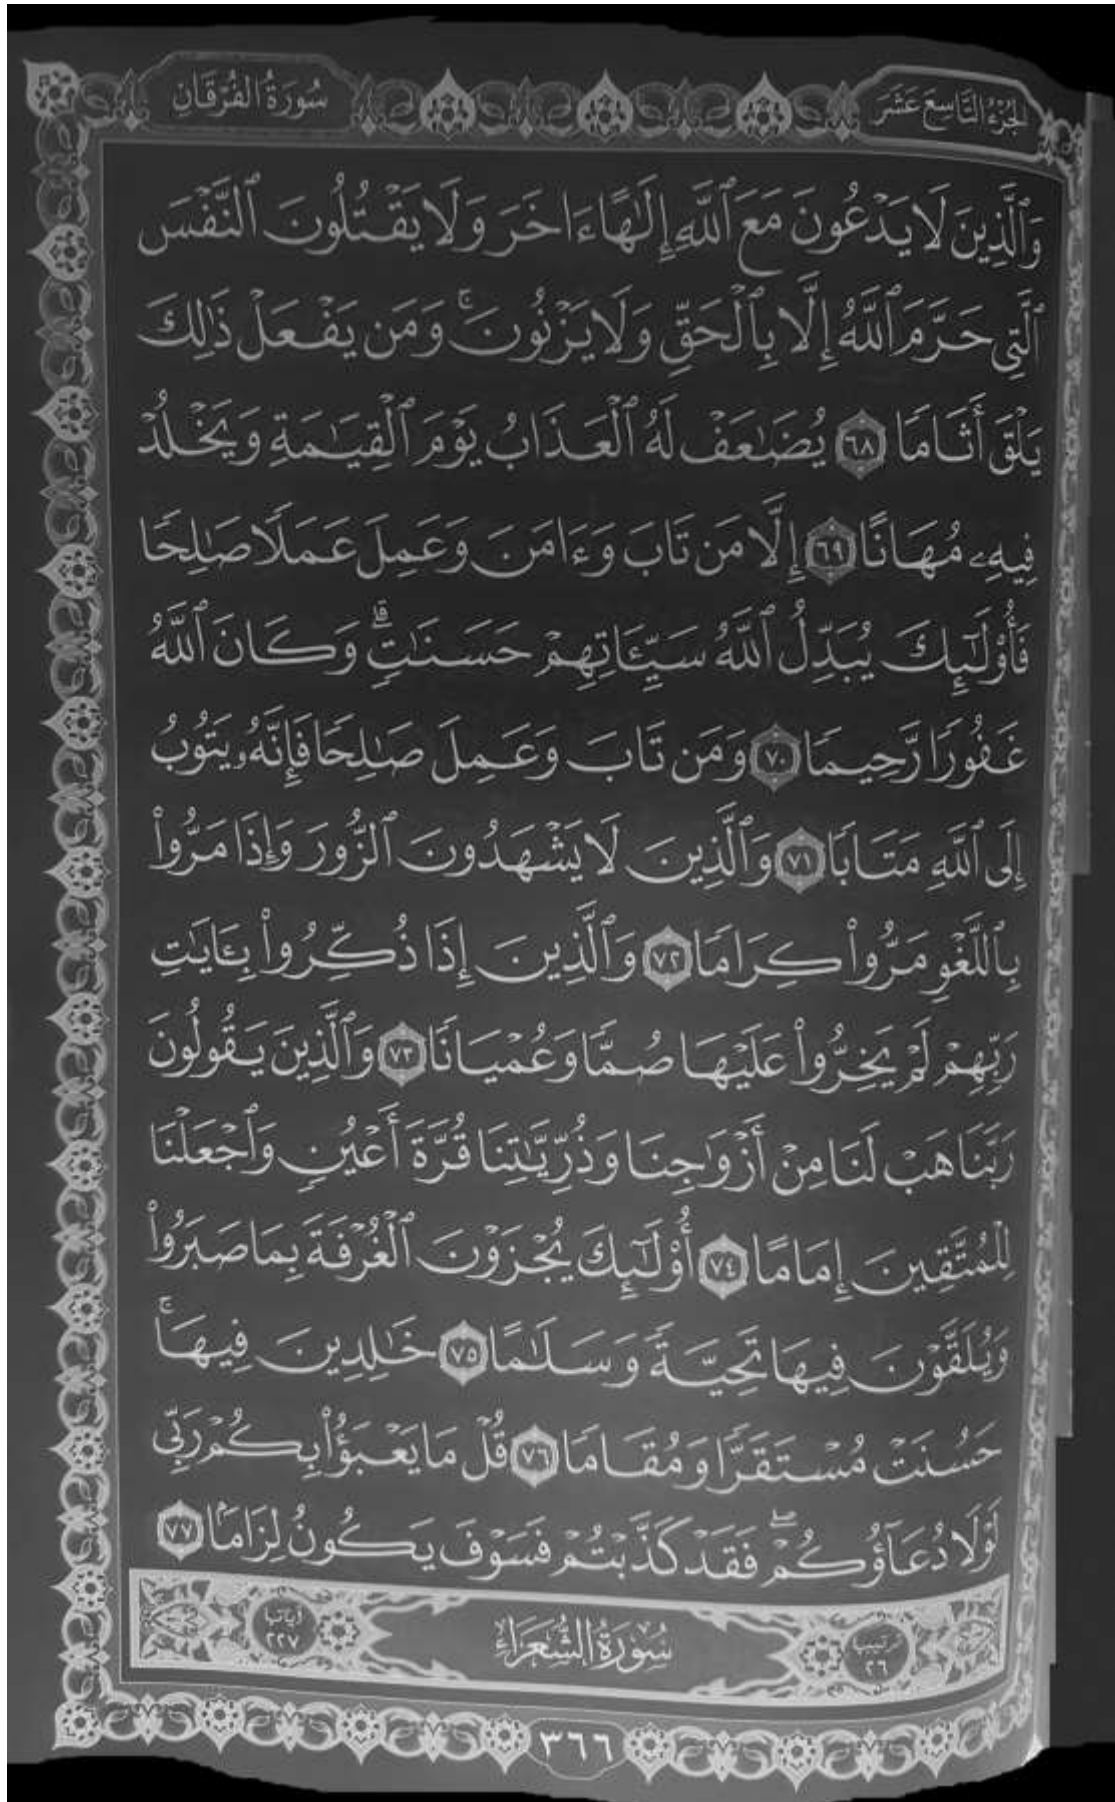 الجزء التاسع عشر
سورة الفرقان
وَٱلَّذِينَ لَا يَدْعُونَ مَعَ ٱللَّهِ إِلَٰهًا ءَاخَرَ وَلَا يَقْتُلُونَ ٱلنَّفْسَ
ٱلَّتِي حَرَّمَ ٱللَّهُ إِلَّا بِٱلْحَقِّ وَلَا يَزْنُونَۚ وَمَن يَفْعَلْ ذَٰلِكَ
يَلْقَ أَثَامًا ٦٨ يُضَٰعَفْ لَهُ ٱلْعَذَابُ يَوْمَ ٱلْقِيَٰمَةِ وَيَخْلُدْ
فِيهِۦ مُهَانًا ٦٩ إِلَّا مَن تَابَ وَءَامَنَ وَعَمِلَ عَمَلًا صَٰلِحًا
فَأُو۟لَٰٓئِكَ يُبَدِّلُ ٱللَّهُ سَيِّـَٔاتِهِمْ حَسَنَٰتٍۗ وَكَانَ ٱللَّهُ
غَفُورًا رَّحِيمًا ٧٠ وَمَن تَابَ وَعَمِلَ صَٰلِحًا فَإِنَّهُۥ يَتُوبُ
إِلَى ٱللَّهِ مَتَابًا ٧١ وَٱلَّذِينَ لَا يَشْهَدُونَ ٱلزُّورَ وَإِذَا مَرُّوا۟
بِٱللَّغْوِ مَرُّوا۟ كِرَامًا ٧٢ وَٱلَّذِينَ إِذَا ذُكِّرُوا۟ بِـَٔايَٰتِ
رَبِّهِمْ لَمْ يَخِرُّوا۟ عَلَيْهَا صُمًّا وَعُمْيَانًا ٧٣ وَٱلَّذِينَ يَقُولُونَ
رَبَّنَا هَبْ لَنَا مِنْ أَزْوَٰجِنَا وَذُرِّيَّٰتِنَا قُرَّةَ أَعْيُنٍ وَٱجْعَلْنَا
لِلْمُتَّقِينَ إِمَامًا ٧٤ أُو۟لَٰٓئِكَ يُجْزَوْنَ ٱلْغُرْفَةَ بِمَا صَبَرُوا۟
وَيُلَقَّوْنَ فِيهَا تَحِيَّةً وَسَلَٰمًا ٧٥ خَٰلِدِينَ فِيهَاۚ
حَسُنَتْ مُسْتَقَرًّا وَمُقَامًا ٧٦ قُلْ مَا يَعْبَؤُا۟ بِكُمْ رَبِّي
لَوْلَا دُعَآؤُكُمْۖ فَقَدْ كَذَّبْتُمْ فَسَوْفَ يَكُونُ لِزَامًۢا ٧٧
ترتيبها ٢٦
سورة الشعراء
آياتها ٢٢٧
٣٦٦